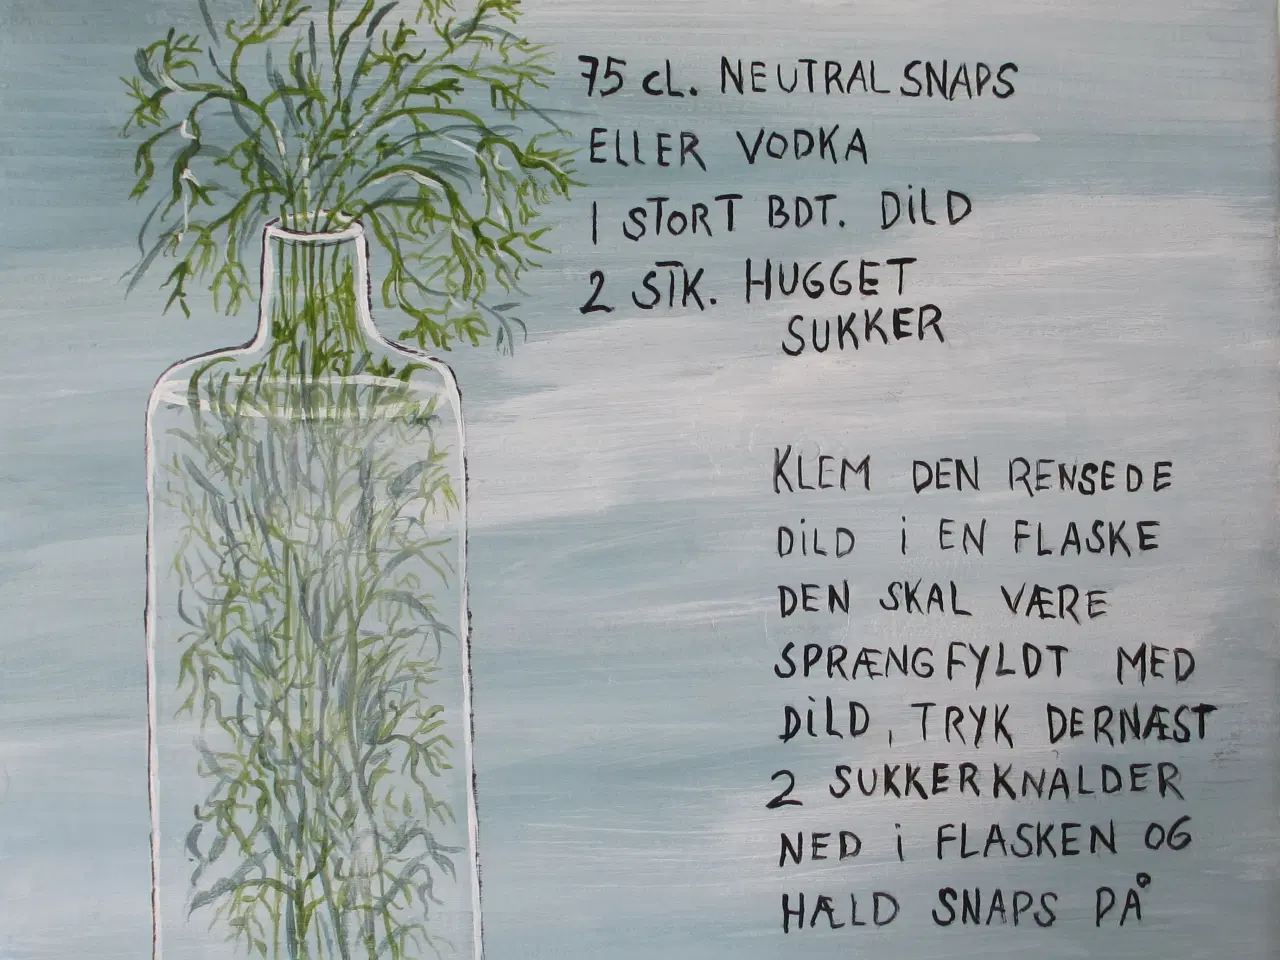 75 CL. NEUTRAL SNAPS
ELLER VODKA
1 STORT BDT. DILD
2 STK. HUGGET
SUKKER
KLEM DEN RENSEDE
DILD I EN FLASKE
DEN SKAL VÆRE
SPRÆNGFYLDT MED
DILD, TRYK DERNÆST
2 SUKKERKNALDER
NED I FLASKEN OG
HÆLD SNAPS PÅ